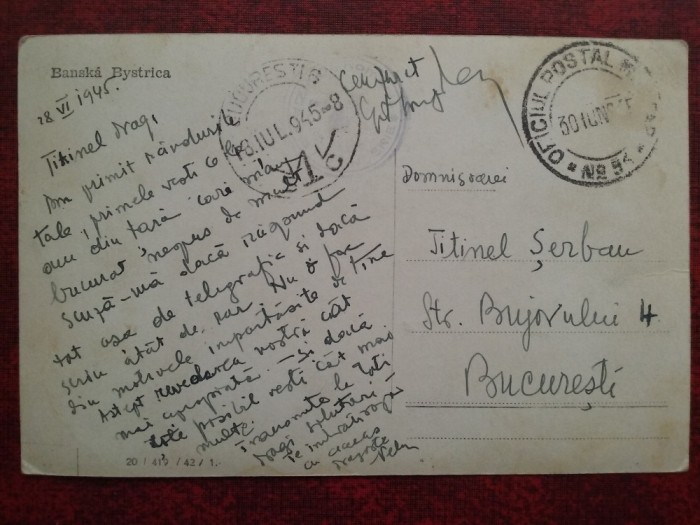 Banská Bystrica
28 VI 1945.
Titinel dragi,
Am primit rândurile
tale, primele vesti ce le
am din țară care m'au
bucurat nespus de mult.
Scuză-mă dacă răspund
tot așa de telegrafic și dacă
scriu atât de rar. Nu o fac
din motivele împărtășite de tine
Aștept revederea noastră cât
mai apropiată. - Și dacă
este posibil vești cât mai
multe.
Transmite la toți
dragi salutări
Te îmbrățișez
cu aceeas
dragoste
20 / 419 / 42 / 1.-
BUCUREȘTI
8.IUL.945-8
Cenzurat
OFICIUL POSTAL
30 IUN
No 54
Domnișoarei
Titinel Șerban
Str. Bujorului 4
București